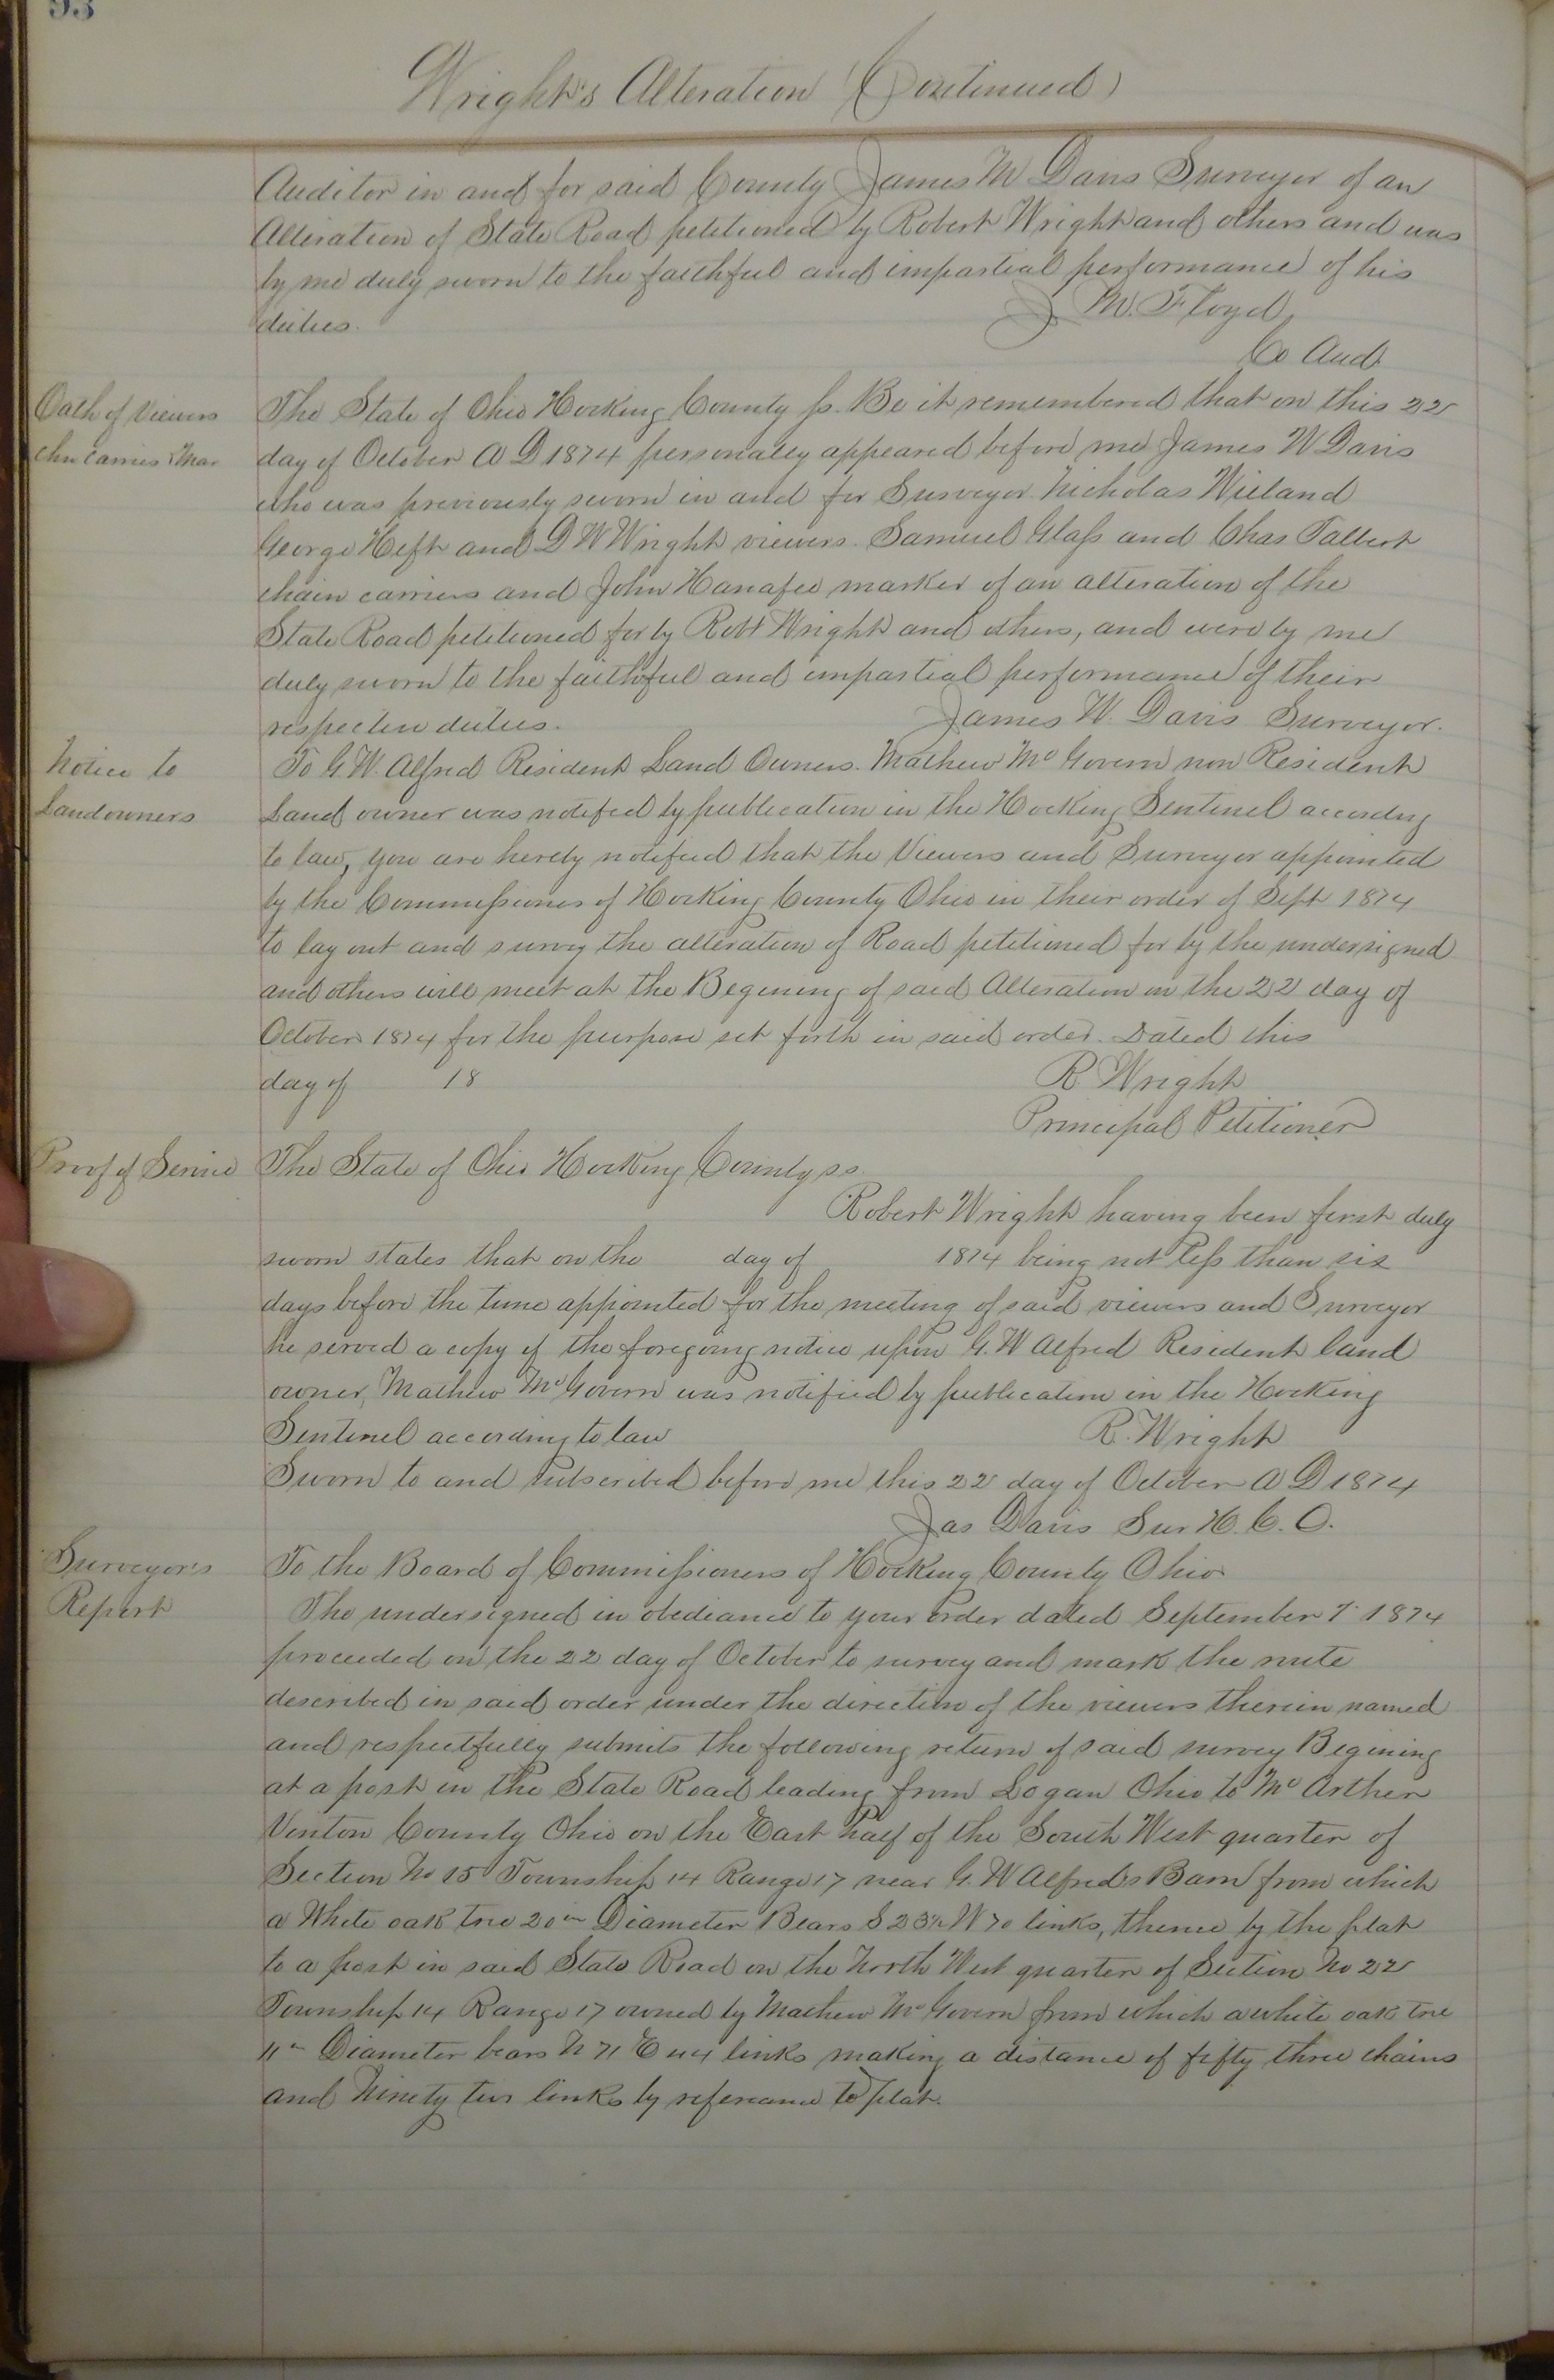 93
Wright's Alteration (Continued)
Auditor in and for said County James W Davis Surveyor of an
Alteration of State Road petitioned by Robert Wright and others and was
by me duly sworn to the faithful and impartial performance of his
duties.
J M. Floyd
Co Aud
Oath of Viewers
chn carriers & Mar
The State of Ohio Hocking County ss. Be it remembered that on this 22
day of October A D 1874 personally appeared before me James W Davis
who was previously sworn in and for Surveyor Nicholas Wieland
George Heft and D W Wright viewers. Samuel Glass and Chas Talbert
chain carriers and John Hanafee marker of an alteration of the
State Road petitioned for by Robt Wright and others, and were by me
duly sworn to the faithful and impartial performance of their
respective duties.
James W. Davis Surveyor.
Notice to
Landowners
To G. W. Alfred Resident Land Owners. Mathew McGovern non Resident
Land owner was notified by publication in the Hocking Sentinel accordng
to law, you are hereby notified that the Viewers and Surveyor appointed
by the Commissioners of Hocking County Ohio in their order of Sept 1874
to lay out and survey the alteration of Road petitioned for by the undersigned
and others will meet at the Begining of said Alteration on the 22 day of
October 1874 for the purpose set forth in said order. Dated this
day of 18
R Wright
Principal Petitioner
Proof of Service
The State of Ohio Hocking County ss.
Robert Wright having been first duly
sworn states that on the day of 1874 being not less than six
days before the time appointed for the meeting of said viewers and Surveyor
he served a copy of the foregoing notice upon G. W Alfred Resident land
owner, Mathew McGovern was notified by publication in the Hocking
Sentinel according to law
R. Wright
Sworn to and subscribed before me this 22 day of October A D 1874
Jas Davis Sur H. C. O.
Surveyor's
Report
To the Board of Commissioners of Hocking County Ohio
The undersigned in obediance to your order dated September 7 1874
proceeded on the 22 day of October to survey and mark the route
described in said order under the direction of the viewers therein named
and respectfully submits the following return of said survey Begining
at a post in the State Road leading from Logan Ohio to McArther
Vinton County Ohio on the East half of the South West quarter of
Section No 15 Township 14 Range 17 near G. W Alfred's Barn from which
a White oak tree 20 in Diameter Bears S 23½ W 70 links, thence by the plat
to a post in said State Road on the North West quarter of Section No 22
Township 14 Range 17 owned by Mathew McGovern from which a white oak tree
11 in Diameter bears N 71 E 44 links making a distance of fifty three chains
and Ninety two links by referance to plat.